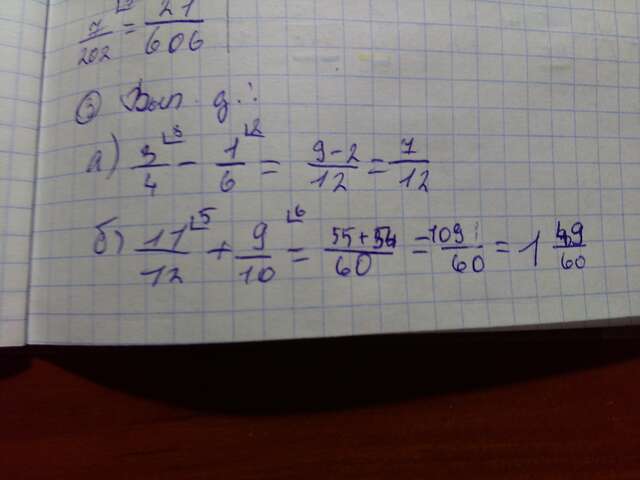 7/202 = 21/606
③ Вып. д.:
а) 3/4 ⌞3 - 1/6 ⌞2 = 9-2/12 = 7/12
б) 11/12 ⌞5 + 9/10 ⌞6 = 55+54/60 = 109/60 = 1 49/60